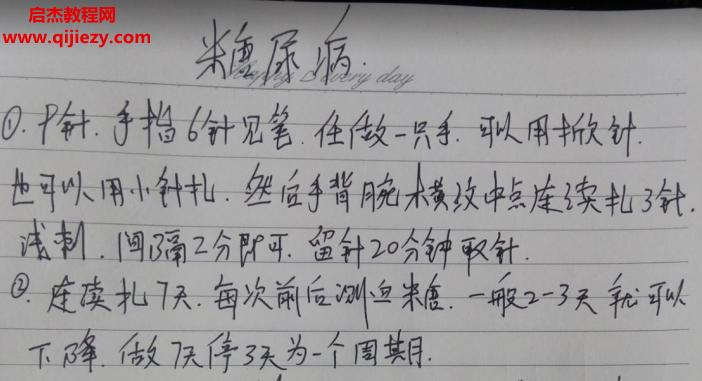 启杰教程网
www.qijiezy.com
糖尿病.
every day
①. P针. 手指6针见笔. 任做一只手. 可以用揿针.
也可以用小针扎. 然后手背腕横纹中点连续扎3针.
浅刺. 间隔2分即可. 留针20分钟取针.
②. 连续扎7天. 每次前后测血糖. 一般2-3天就可以
下降. 做7天停3天为一个周期.